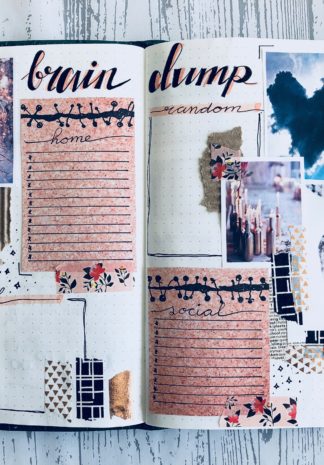 brain dump
random
home
social